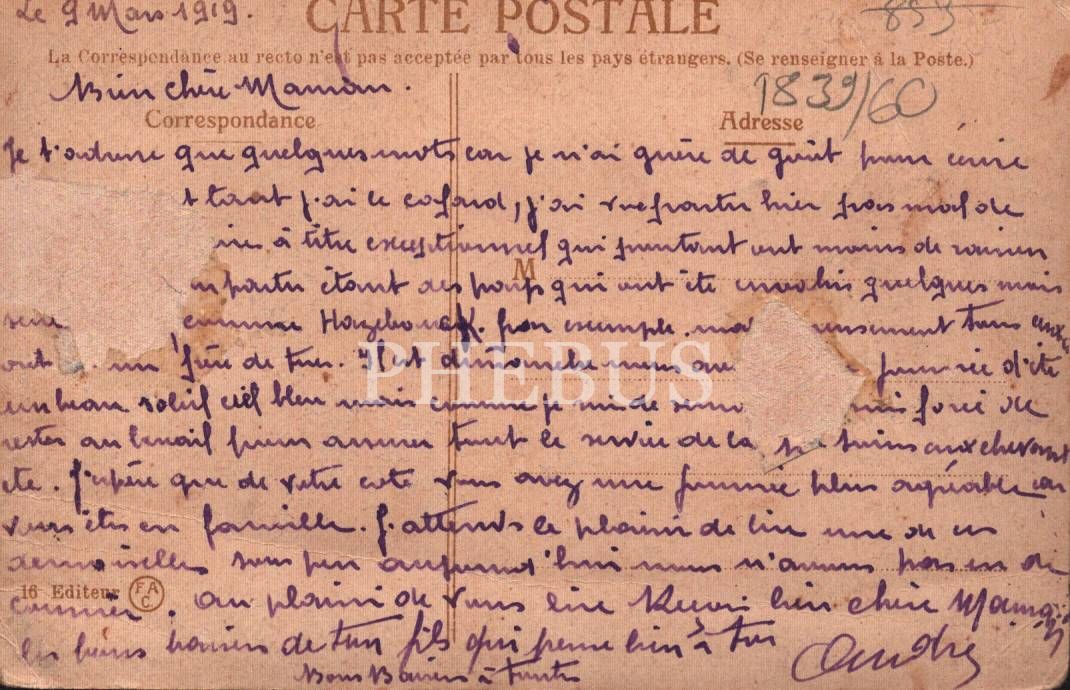 Le 9 Mars 1919.
CARTE POSTALE
La Correspondance au recto n'est pas acceptée par tous les pays étrangers. (Se renseigner à la Poste.)
Bien chère Maman.
1839/60
Correspondance
Adresse
Je t'adresse que quelques mots car je n'ai guère de goût pour écrire
tant j'ai le cafard, j'ai vu partir hier pas mal de
à titre exceptionnel qui pourtant ont moins de raison
partir étant des pays qui ont été envahis quelques mois
M
comme Hazebrouck. par exemple. tous ceux
ont un frère de tué. C'est dimanche nous journée d'été
un beau soleil ciel bleu mais comme je suis de forcé de
rester au travail pour assurer tout le service de la soins aux chevaux
etc. J'espère que de votre coté vous avez une journée plus agréable car
vous êtes en famille. J'attends le plaisir de lire une de ces
demoiselles sous peu aujourd'hui nous n'avons pas eu de
16 Editeur FAC
courrier. au plaisir de vous lire Reçois bien chère Maman
les bons baisers de ton fils qui pense bien à toi
André
Bons Baisers à toutes
PHEBUS